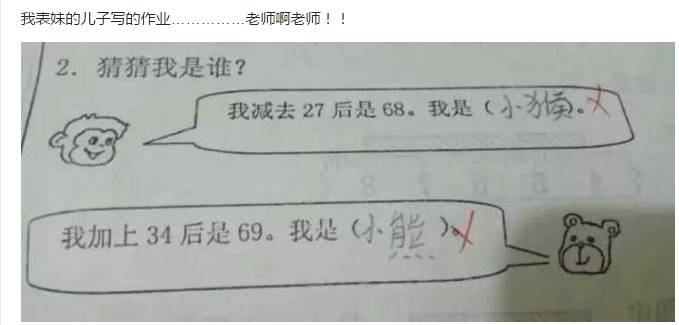 我表妹的儿子写的作业……………老师啊老师！！
2. 猜猜我是谁？
我减去 27 后是 68。我是（小猴）。
我加上 34 后是 69。我是（小熊）。